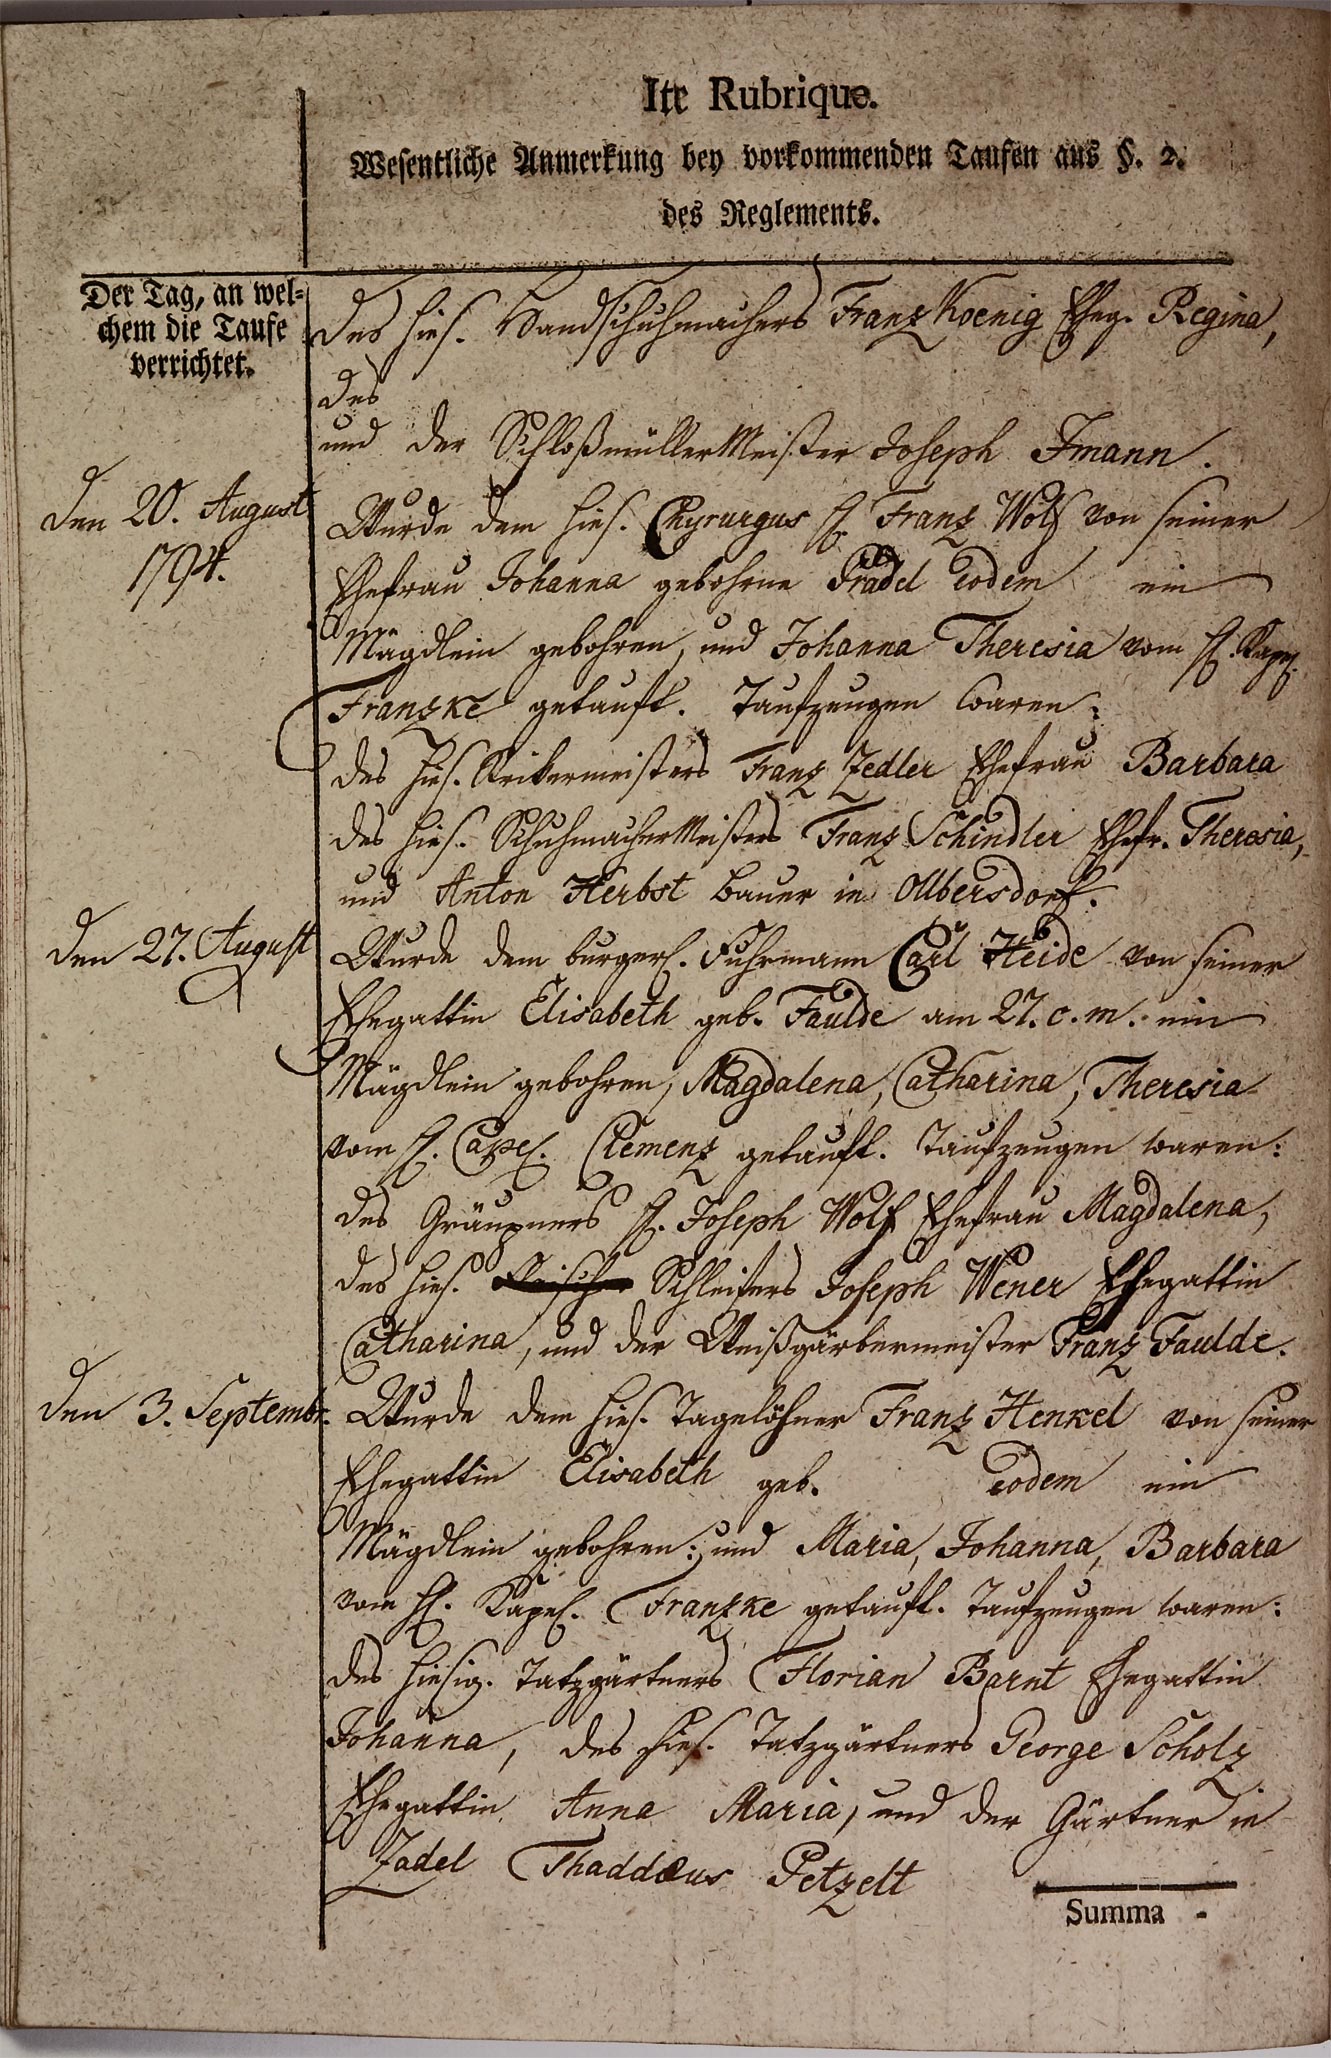 Ite Rubrique.
Wesentliche Anmerkung bey vorkommenden Taufen aus §. 2.
des Reglements.
Der Tag, an wel-
chem die Taufe
verrichtet.
des hies. Handschuhmachers Franz Koenig Eheg. Regina,
des
und der Schloßmüller Meister Joseph Imann.
den 20. August
1794.
Wurde dem hies. Chyrurgus H. Franz Wolf von seiner
Ehefrau Johanna gebohrne Prädel eodem ein
Mägdlein gebohren, und Johanna Theresia vom H. Kapel.
Franzke getauft. Taufzeugen waren:
des hies. Strikermeisters Franz Zedler Ehefrau Barbara
des hies. Schuhmacher Meisters Franz Schindler Ehefr. Theresia,
und Anton Herbst Bauer in Olbersdorf.
den 27. August
Wurde dem burgerl. Fuhrmann Carl Heide von seiner
Ehegattin Elisabeth geb. Faulde am 27. c. m. ein
Mägdlein gebohren, Magdalena, Catharina, Theresia
vom H. Capel. Clemenz getauft. Taufzeugen waren:
des Gräupners H. Joseph Wolf Ehefrau Magdalena,
des hies. Schleifers Joseph Wener Ehegattin
Catharina, und der Weißgärbermeister Franz Faulde.
den 3. Septembr.
Wurde dem hies. Tagelöhner Franz Henkel von seiner
Ehegattin Elisabeth geb. eodem ein
Mägdlein gebohren: und Maria, Johanna, Barbara
vom H. Kapel. Franzke getauft. Taufzeugen waren:
des hiesig. Tatzgärtners Florian Barnt Ehegattin
Johanna, des hies. Tatzgärtners George Scholz
Ehegattin Anna Maria, und der Gärtner in
Zadel Thaddæus Petzelt
Summa -